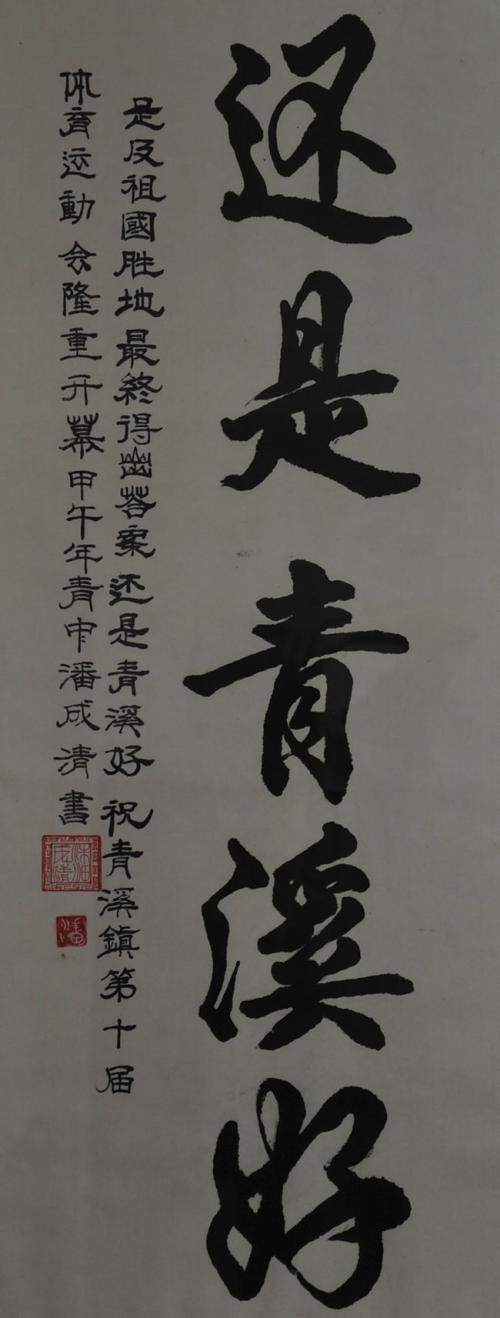 还是青溪好
足及祖國胜地最終得出答案还是青溪好祝青溪鎮第十届
体育运動会隆重开幕甲午年青中潘成清書
潘